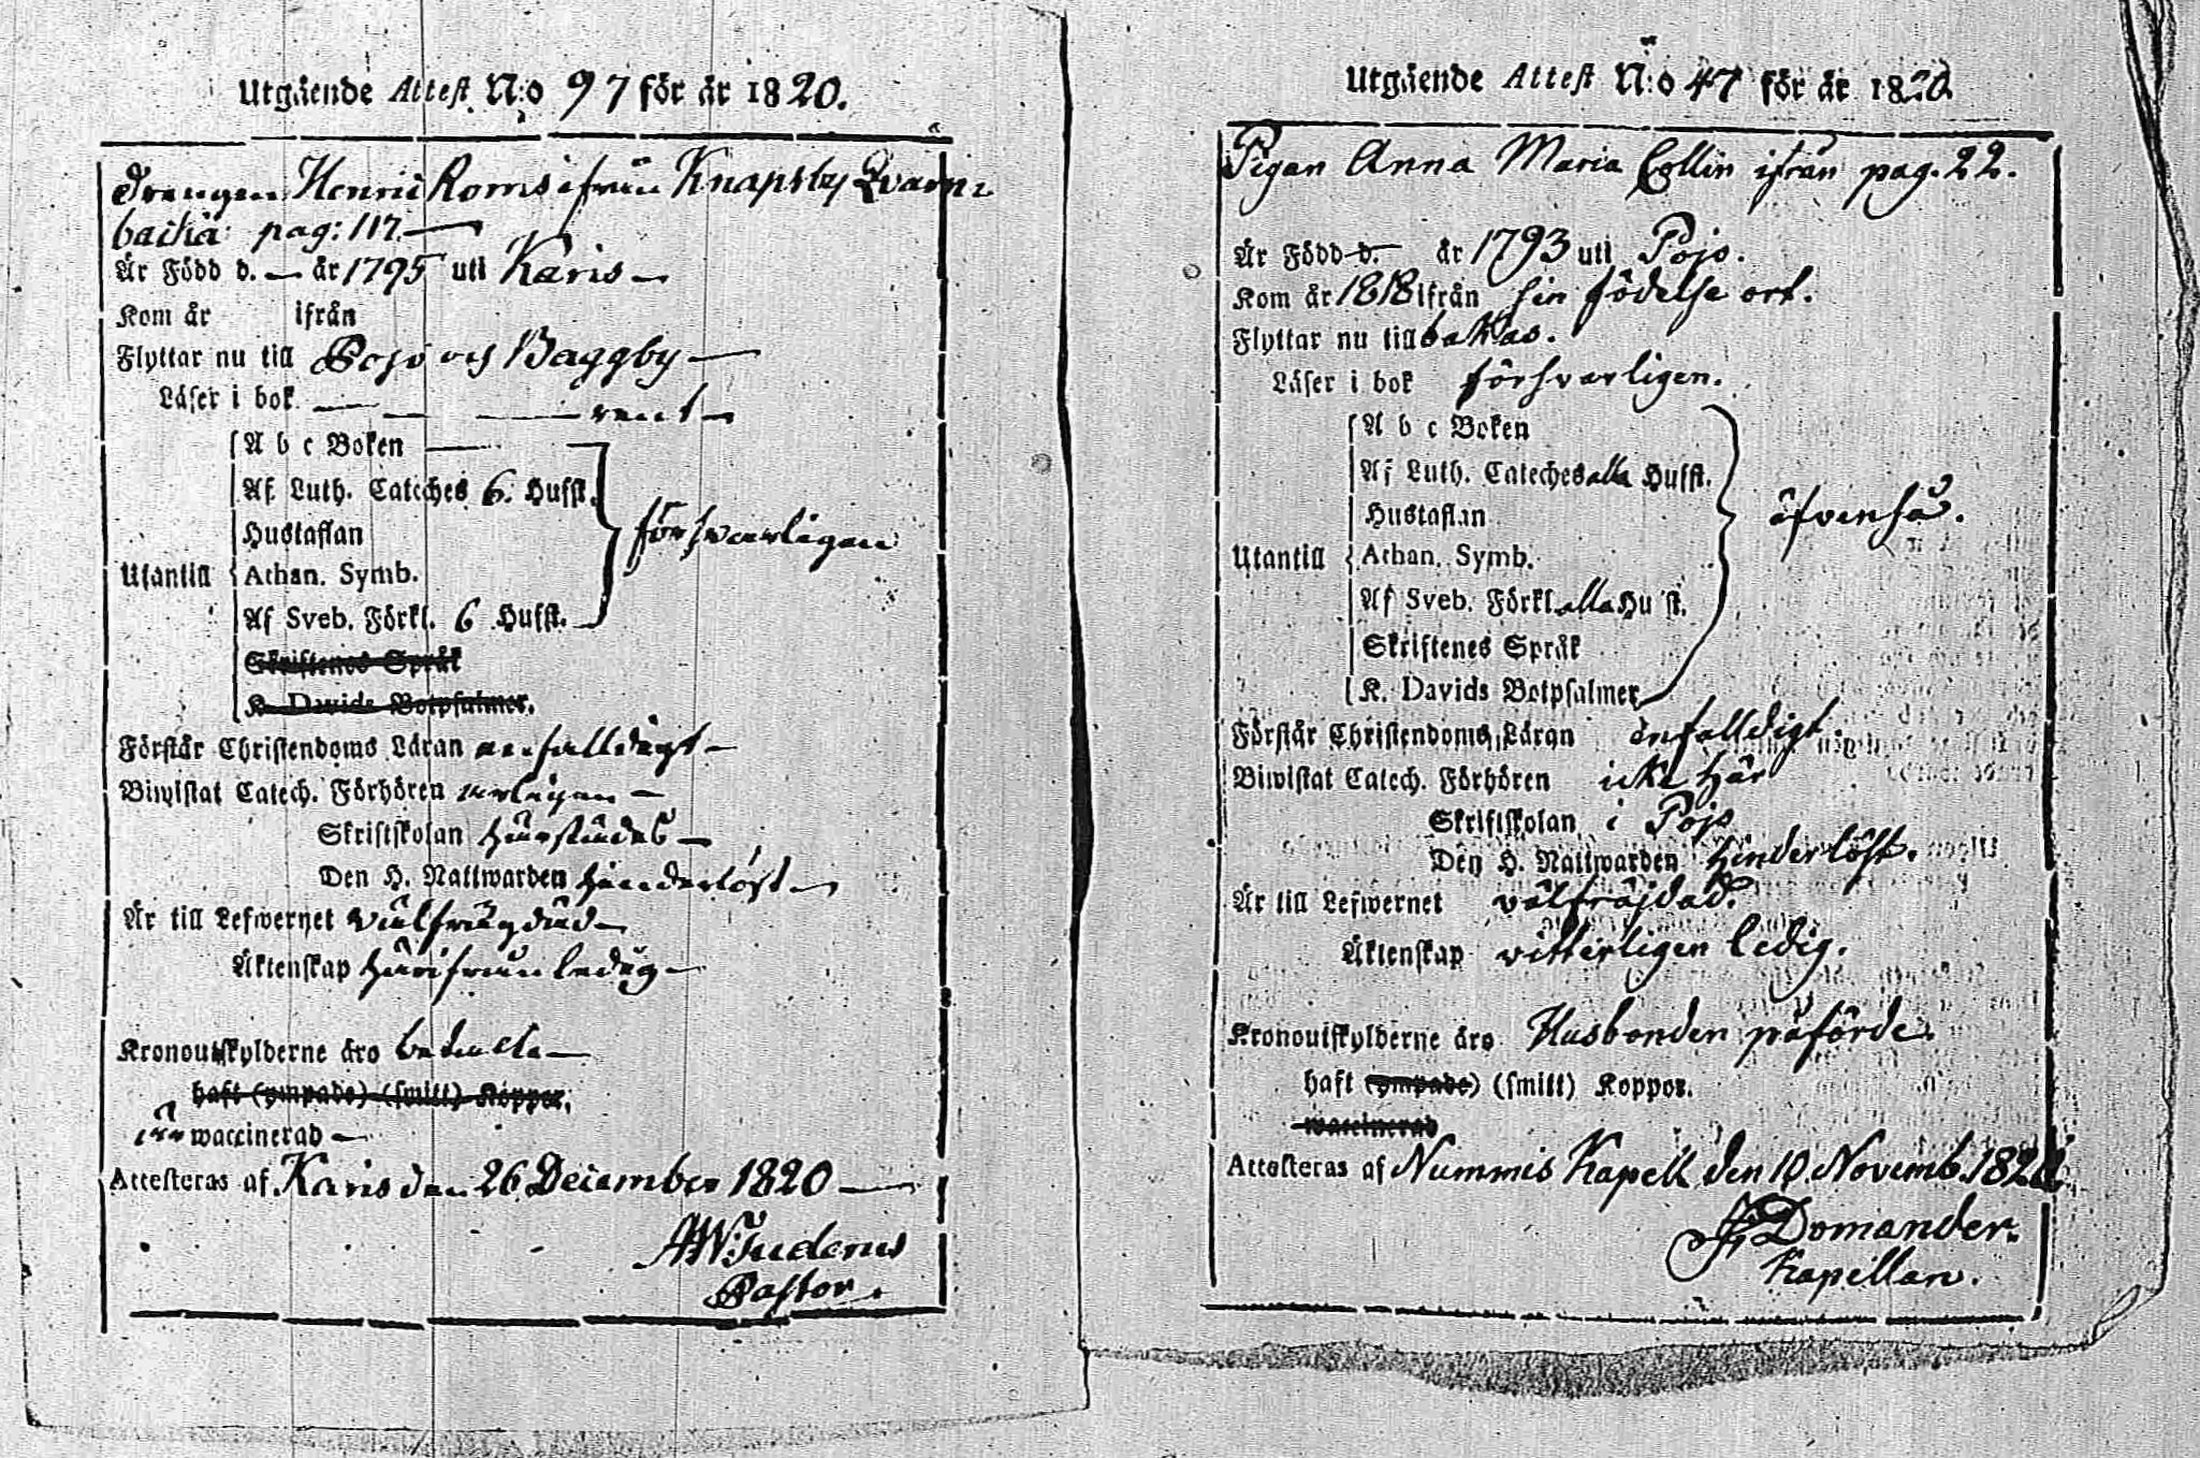 Utgående Attest N:o 97 för år 1820.
Drengen Henric Roms ifrån Knapsby Qvarn
backa pag: 117.
Är Född d. — år 1795 uti Karis —
Kom år ifrån
Flyttar nu till Pojo och Baggby —
Läser i bok — — — rent —
A b c Boken —
Af Luth. Cateches 6. Hufst.
Hustaflan
försvarligen
Utantill
Athan. Symb.
Af Sveb. Förkl. 6 Hufst.
Skriftenes Språk
K. Davids Botpsalmer.
Förstår Christendoms Läran enfalldigt —
Biwistat Catech. Förhören årligen —
Skriftskolan härstädes —
Den H. Nattwarden hinderlöst —
Är till Lefwernet välfrägdad —
Äktenskap härifrån ledig —
Kronoutskylderne äro betalta —
haft (ympade) (smitt) Koppor.
waccinerad —
Attesteras af Karis den 26 December 1820 —
AW Tuderus
Pastor.
Utgående Attest N:o 47 för år 1820
Pigan Anna Maria Collin ifrån pag. 22.
Är Född d. — år 1793 uti Pojo.
Kom år 1818 ifrån sin födelse ort.
Flyttar nu till bakas.
Läser i bok försvarligen.
A b c Boken
Af Luth. Cateches alla Hufst.
Hustaflan
äfvenså.
Utantill
Athan. Symb.
Af Sveb. Förkl. alla Hufst.
Skriftenes Språk
K. Davids Botpsalmer
Förstår Christendoms Läran enfalldigt.
Biwistat Catech. Förhören icke här
Skriftskolan i Pojo
Den H. Nattwarden hinderlöst.
Är till Lefwernet välfräjdad.
Äktenskap vitterligen ledig.
Kronoutskylderne äro Husbonden påförde.
haft (ympade) (smitt) Koppor.
waccinerad
Attesteras af Nummis Kapell den 10. Novemb. 1820
J Domander.
Kapellan.